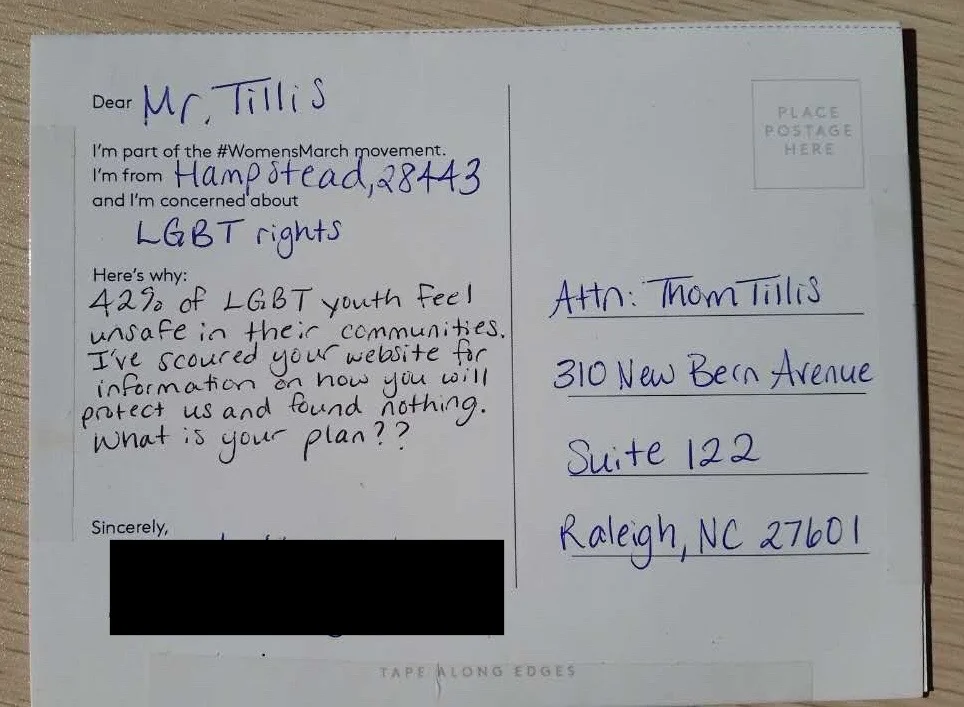 Dear Mr. Tillis
I'm part of the #WomensMarch movement.
I'm from Hampstead, 28443
and I'm concerned about
LGBT rights
Here's why:
42% of LGBT youth feel
unsafe in their communities.
I've scoured your website for
information on how you will
protect us and found nothing.
What is your plan??
Sincerely,
PLACE
POSTAGE
HERE
Attn: Thom Tillis
310 New Bern Avenue
Suite 122
Raleigh, NC 27601
TAPE ALONG EDGES